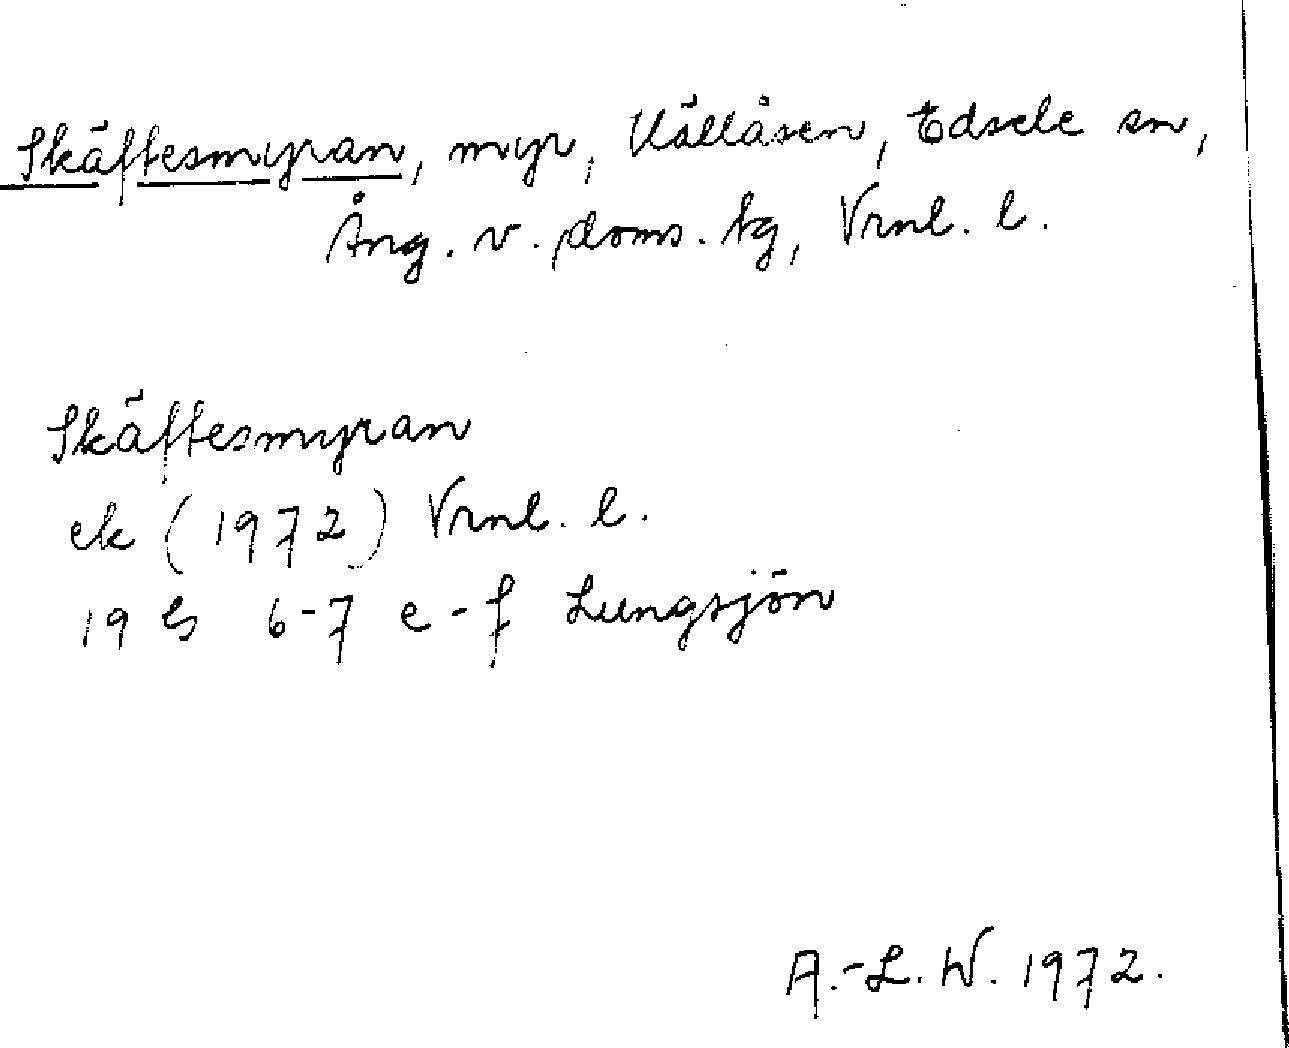 Skäftesmyran, myr, Källåsen, Edsele sn,
Ång. v. doms. tg, Vrnl. l.
Skäftesmyran
ek (1972) Vrnl. l.
19 G 6-7 e-f Lungsjön
A.-L. W. 1972.